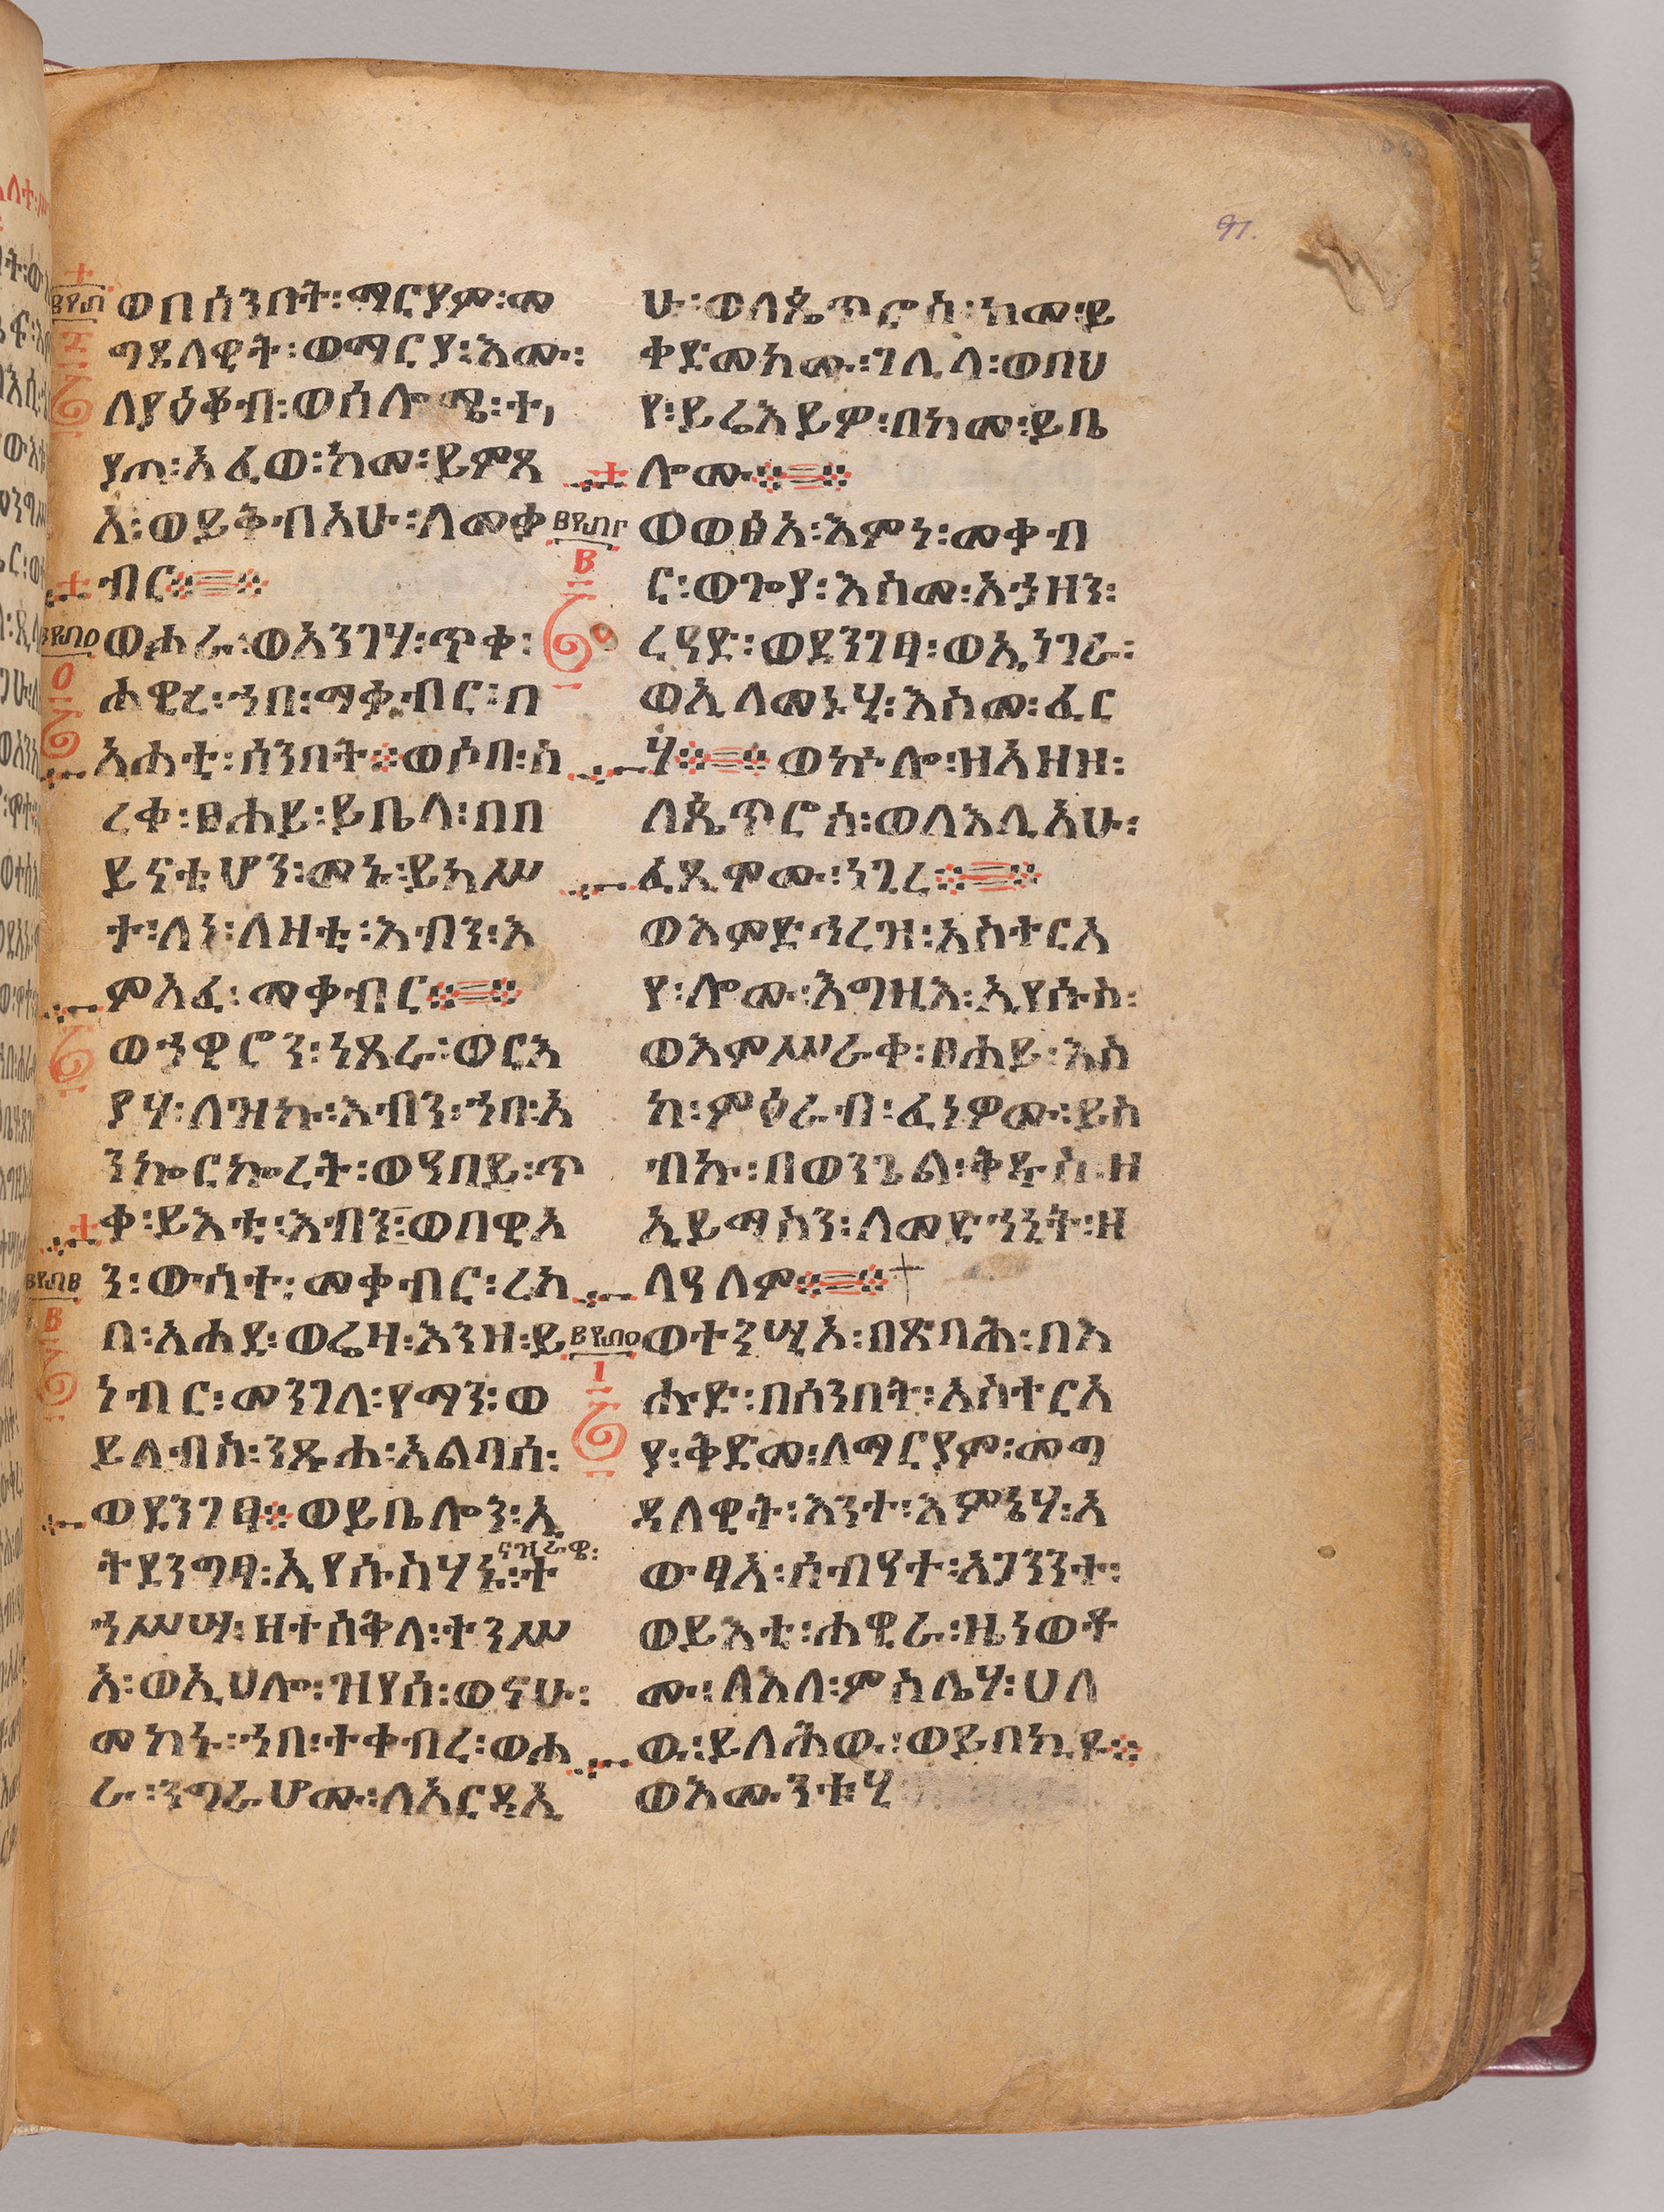 91.
ወበሰንበት፡ማርያም፡መ
ግደለዊት፡ወማርያ፡እሙ፡
ለያዕቆብ፡ወሰሎሜ፡ተ፣
ያጠ፡አፈወ፡ከመ፡ይምጻ
አ፡ወይቅብአሁ፡ለመቃ
ብር፨
ወሖራ፡ወአንገሃ፡ጥቀ፡
ሐዊረ፡ኀበ፡ማቃብር፡በ
አሐቲ፡ሰንበት፨ወሶበ፡ስ
ረቀ፡ፀሐይ፡ይቤላ፡በበ
ይናቲሆን፡መኑ፡ይከሥ
ት፡ለነ፡ለዛቲ፡እብን፡እ
ምአፈ፡መቃብር፨
ወኀዊሮን፡ነጸራ፡ወርእ
ያሃ፡ለዝኩ፡እብን፡ኀበ፡አ
ንኰርኰረት፡ወዓበይ፡ጥ
ቀ፡ይእቲ፡እብን፡ወበዊአ
ን፡ውስተ፡መቃብር፡ረከ
ባ፡አሐደ፡ወሬዛ፡እንዘ፡ይ
ነብር፡መንገለ፡የማን፡ወ
ይለብስ፡ንጹሐ፡አልባሰ፡
ወደንገፃ፨ወይቤሎን፡ኢ
ናዝራዌ፡
ትደንግፃ፡ኢየሱስሃኑ፡ት
ኀሥሣ፡ዘተሰቅለ፡ተንሥ
አ፡ወኢሀሎ፡ዝየሰ፡ወናሁ፡
መካኑ፡ኀበ፡ተቀብረ፡ወሖ
ራ፡ንግራሆሙ፡ለአርዳኢ
ሁ፡ወለጴጥሮስ፡ከመ፡ይ
ቀድመክሙ፡ገሊላ፡ወበህ
የ፡ይሬእይዎ፡በከመ፡ይቤ
ሎሙ፨
ወወፅአ፡እምነ፡መቃብ
ር፡ወጐያ፡እስመ፡አኃዘን፡
ረዓድ፡ወደንገፃ፡ወኢነገራ፡
ወኢለመኑሂ፡እስመ፡ፈር
ሃ፨ወኵሎ፡ዘአዘዘ፡
ለጴጥሮስ፡ወለእሊአሁ፡
ፈጺሞሙ፡ነጊረ፨
ወእምድኅረዝ፡አስተርአ
የ፡ሎሙ፡እግዚእ፡ኢየሱስ፡
ወእምሥራቀ፡ፀሐይ፡እስ
ከ፡ምዕራብ፡ፈነዎሙ፡ይስ
ብኩ፡በወንጌል፡ቅዱስ፡ዘ
ኢይማስን፡ለመድኀኒት፡ዘ
ለዓለም፨
ወተንሢኦ፡በጽባሕ፡በእ
ሑድ፡በሰንበት፡አስተርአ
ያ፡ቅድመ፡ለማርያም፡መግ
ዳለዊት፡እንተ፡እምኔሃ፡አ
ውፃአ፡ሰብዓተ፡አጋንንተ፡
ወይእቲ፡ሐዊራ፡ዜነወቶ
ሙ፡ለእለ፡ምስሌሃ፡ሀለ
ዉ፡ይለሕዉ፡ወይበክዩ፨
ወእሙንቱሂ